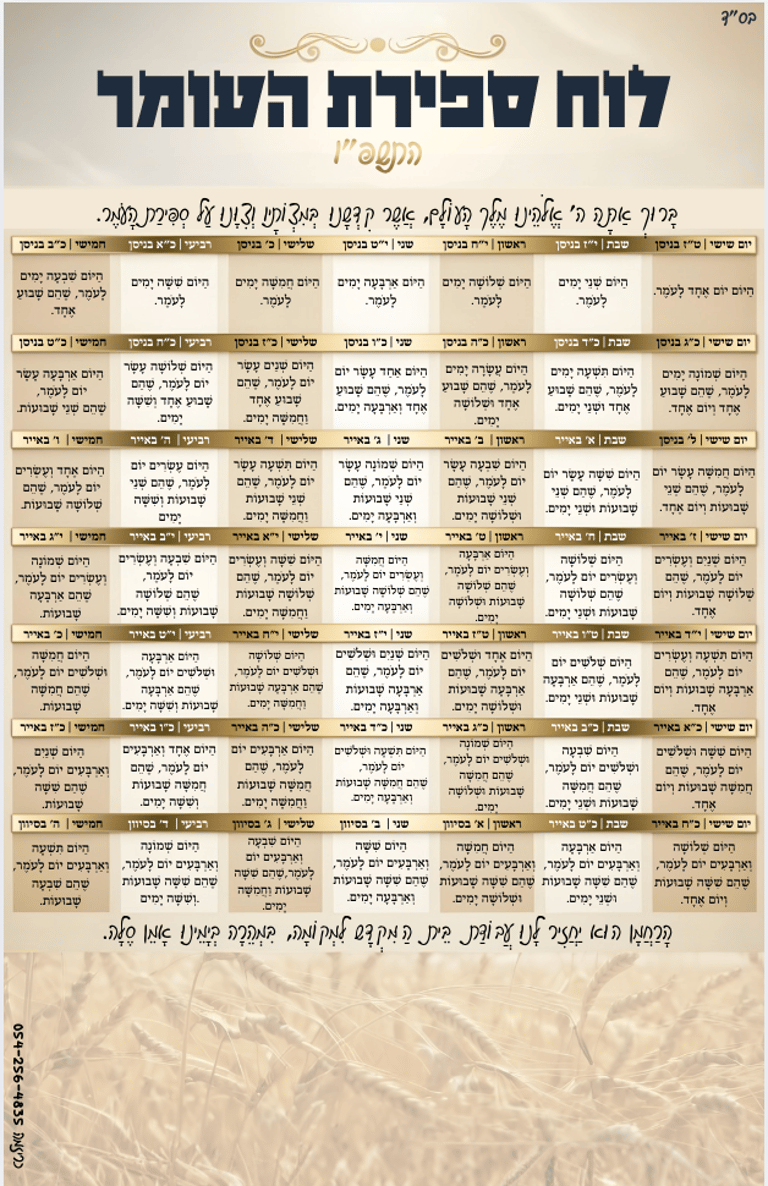 בס"ד
לוח ספירת העומר
התשפ"ו
בָּרוּךְ אַתָּה ה' אֱלֹהֵינוּ מֶלֶךְ הָעוֹלָם, אֲשֶׁר קִדְּשָׁנוּ בְּמִצְוֹתָיו וְצִוָּנוּ עַל סְפִירַת הָעֹמֶר.
יום שישי | ט"ז בניסן
שבת | י"ז בניסן
ראשון | י"ח בניסן
שני | י"ט בניסן
שלישי | כ' בניסן
רביעי | כ"א בניסן
חמישי | כ"ב בניסן
הַיּוֹם יוֹם אֶחָד לָעֹמֶר.
הַיּוֹם שְׁנֵי יָמִים
לָעֹמֶר.
הַיּוֹם שְׁלוֹשָׁה יָמִים
לָעֹמֶר.
הַיּוֹם אַרְבָּעָה יָמִים
לָעֹמֶר.
הַיּוֹם חֲמִשָּׁה יָמִים
לָעֹמֶר.
הַיּוֹם שִׁשָּׁה יָמִים
לָעֹמֶר.
הַיּוֹם שִׁבְעָה יָמִים
לָעֹמֶר, שֶׁהֵם שָׁבוּעַ
אֶחָד.
יום שישי | כ"ג בניסן
שבת | כ"ד בניסן
ראשון | כ"ה בניסן
שני | כ"ו בניסן
שלישי | כ"ז בניסן
רביעי | כ"ח בניסן
חמישי | כ"ט בניסן
הַיּוֹם שְׁמוֹנָה יָמִים
לָעֹמֶר, שֶׁהֵם שָׁבוּעַ
אֶחָד וְיוֹם אֶחָד.
הַיּוֹם תִּשְׁעָה יָמִים
לָעֹמֶר, שֶׁהֵם שָׁבוּעַ
אֶחָד וּשְׁנֵי יָמִים.
הַיּוֹם עֲשָׂרָה יָמִים
לָעֹמֶר, שֶׁהֵם שָׁבוּעַ
אֶחָד וּשְׁלוֹשָׁה
יָמִים.
הַיּוֹם אַחַד עָשָׂר יוֹם
לָעֹמֶר, שֶׁהֵם שָׁבוּעַ
אֶחָד וְאַרְבָּעָה יָמִים.
הַיּוֹם שְׁנֵים עָשָׂר
יוֹם לָעֹמֶר, שֶׁהֵם
שָׁבוּעַ אֶחָד
וַחֲמִשָּׁה יָמִים.
הַיּוֹם שְׁלוֹשָׁה עָשָׂר
יוֹם לָעֹמֶר, שֶׁהֵם
שָׁבוּעַ אֶחָד וְשִׁשָּׁה
יָמִים.
הַיּוֹם אַרְבָּעָה עָשָׂר
יוֹם לָעֹמֶר,
שֶׁהֵם שְׁנֵי שָׁבוּעוֹת.
יום שישי | ל' בניסן
שבת | א' באייר
ראשון | ב' באייר
שני | ג' באייר
שלישי | ד' באייר
רביעי | ה' באייר
חמישי | ו' באייר
הַיּוֹם חֲמִשָּׁה עָשָׂר יוֹם
לָעֹמֶר, שֶׁהֵם שְׁנֵי
שָׁבוּעוֹת וְיוֹם אֶחָד.
הַיּוֹם שִׁשָּׁה עָשָׂר יוֹם
לָעֹמֶר, שֶׁהֵם שְׁנֵי
שָׁבוּעוֹת וּשְׁנֵי יָמִים.
הַיּוֹם שִׁבְעָה עָשָׂר
יוֹם לָעֹמֶר, שֶׁהֵם
שְׁנֵי שָׁבוּעוֹת
וּשְׁלוֹשָׁה יָמִים.
הַיּוֹם שְׁמוֹנָה עָשָׂר
יוֹם לָעֹמֶר, שֶׁהֵם
שְׁנֵי שָׁבוּעוֹת
וְאַרְבָּעָה יָמִים.
הַיּוֹם תִּשְׁעָה עָשָׂר
יוֹם לָעֹמֶר, שֶׁהֵם
שְׁנֵי שָׁבוּעוֹת
וַחֲמִשָּׁה יָמִים.
הַיּוֹם עֶשְׂרִים יוֹם
לָעֹמֶר, שֶׁהֵם שְׁנֵי
שָׁבוּעוֹת וְשִׁשָּׁה
יָמִים
הַיּוֹם אֶחָד וְעֶשְׂרִים
יוֹם לָעֹמֶר, שֶׁהֵם
שְׁלוֹשָׁה שָׁבוּעוֹת.
יום שישי | ז' באייר
שבת | ח' באייר
ראשון | ט' באייר
שני | י' באייר
שלישי | י"א באייר
רביעי | י"ב באייר
חמישי | י"ג באייר
הַיּוֹם שְׁנַיִם וְעֶשְׂרִים
יוֹם לָעֹמֶר, שֶׁהֵם
שְׁלוֹשָׁה שָׁבוּעוֹת וְיוֹם
אֶחָד.
הַיּוֹם שְׁלוֹשָׁה
וְעֶשְׂרִים יוֹם לָעֹמֶר,
שֶׁהֵם שְׁלוֹשָׁה
שָׁבוּעוֹת וּשְׁנֵי יָמִים.
הַיּוֹם אַרְבָּעָה
וְעֶשְׂרִים יוֹם לָעֹמֶר,
שֶׁהֵם שְׁלוֹשָׁה
שָׁבוּעוֹת וּשְׁלוֹשָׁה
יָמִים.
הַיּוֹם חֲמִשָּׁה
וְעֶשְׂרִים יוֹם לָעֹמֶר,
שֶׁהֵם שְׁלוֹשָׁה שָׁבוּעוֹת
וְאַרְבָּעָה יָמִים.
הַיּוֹם שִׁשָּׁה וְעֶשְׂרִים
יוֹם לָעֹמֶר, שֶׁהֵם
שְׁלוֹשָׁה שָׁבוּעוֹת
וַחֲמִשָּׁה יָמִים.
הַיּוֹם שִׁבְעָה וְעֶשְׂרִים
יוֹם לָעֹמֶר,
שֶׁהֵם שְׁלוֹשָׁה
שָׁבוּעוֹת וְשִׁשָּׁה יָמִים.
הַיּוֹם שְׁמוֹנָה
וְעֶשְׂרִים יוֹם לָעֹמֶר,
שֶׁהֵם אַרְבָּעָה
שָׁבוּעוֹת.
יום שישי | י"ד באייר
שבת | ט"ו באייר
ראשון | ט"ז באייר
שני | י"ז באייר
שלישי | י"ח באייר
רביעי | י"ט באייר
חמישי | כ' באייר
הַיּוֹם תִּשְׁעָה וְעֶשְׂרִים
יוֹם לָעֹמֶר, שֶׁהֵם
אַרְבָּעָה שָׁבוּעוֹת וְיוֹם
אֶחָד.
הַיּוֹם שְׁלֹשִׁים יוֹם
לָעֹמֶר, שֶׁהֵם אַרְבָּעָה
שָׁבוּעוֹת וּשְׁנֵי יָמִים.
הַיּוֹם אֶחָד וּשְׁלֹשִׁים
יוֹם לָעֹמֶר, שֶׁהֵם
אַרְבָּעָה שָׁבוּעוֹת
וּשְׁלוֹשָׁה יָמִים.
הַיּוֹם שְׁנַיִם וּשְׁלֹשִׁים
יוֹם לָעֹמֶר, שֶׁהֵם
אַרְבָּעָה שָׁבוּעוֹת
וְאַרְבָּעָה יָמִים.
הַיּוֹם שְׁלוֹשָׁה
וּשְׁלֹשִׁים יוֹם לָעֹמֶר,
שֶׁהֵם אַרְבָּעָה שָׁבוּעוֹת
וַחֲמִשָּׁה יָמִים.
הַיּוֹם אַרְבָּעָה
וּשְׁלֹשִׁים יוֹם לָעֹמֶר,
שֶׁהֵם אַרְבָּעָה
שָׁבוּעוֹת וְשִׁשָּׁה יָמִים.
הַיּוֹם חֲמִשָּׁה
וּשְׁלֹשִׁים יוֹם לָעֹמֶר,
שֶׁהֵם חֲמִשָּׁה
שָׁבוּעוֹת.
יום שישי | כ"א באייר
שבת | כ"ב באייר
ראשון | כ"ג באייר
שני | כ"ד באייר
שלישי | כ"ה באייר
רביעי | כ"ו באייר
חמישי | כ"ז באייר
הַיּוֹם שִׁשָּׁה וּשְׁלֹשִׁים
יוֹם לָעֹמֶר, שֶׁהֵם
חֲמִשָּׁה שָׁבוּעוֹת וְיוֹם
אֶחָד.
הַיּוֹם שִׁבְעָה
וּשְׁלֹשִׁים יוֹם לָעֹמֶר,
שֶׁהֵם חֲמִשָּׁה
שָׁבוּעוֹת וּשְׁנֵי יָמִים.
הַיּוֹם שְׁמוֹנָה
וּשְׁלֹשִׁים יוֹם לָעֹמֶר,
שֶׁהֵם חֲמִשָּׁה
שָׁבוּעוֹת וּשְׁלוֹשָׁה
יָמִים.
הַיּוֹם תִּשְׁעָה וּשְׁלֹשִׁים
יוֹם לָעֹמֶר,
שֶׁהֵם חֲמִשָּׁה שָׁבוּעוֹת
וְאַרְבָּעָה יָמִים.
הַיּוֹם אַרְבָּעִים יוֹם
לָעֹמֶר, שֶׁהֵם
חֲמִשָּׁה שָׁבוּעוֹת
וַחֲמִשָּׁה יָמִים.
הַיּוֹם אֶחָד וְאַרְבָּעִים
יוֹם לָעֹמֶר, שֶׁהֵם
חֲמִשָּׁה שָׁבוּעוֹת
וְשִׁשָּׁה יָמִים.
הַיּוֹם שְׁנַיִם
וְאַרְבָּעִים יוֹם לָעֹמֶר,
שֶׁהֵם שִׁשָּׁה
שָׁבוּעוֹת.
יום שישי | כ"ח באייר
שבת | כ"ט באייר
ראשון | א' בסיוון
שני | ב' בסיוון
שלישי | ג' בסיוון
רביעי | ד' בסיוון
חמישי | ה' בסיוון
הַיּוֹם שְׁלוֹשָׁה
וְאַרְבָּעִים יוֹם לָעֹמֶר,
שֶׁהֵם שִׁשָּׁה שָׁבוּעוֹת
וְיוֹם אֶחָד.
הַיּוֹם אַרְבָּעָה
וְאַרְבָּעִים יוֹם לָעֹמֶר,
שֶׁהֵם שִׁשָּׁה שָׁבוּעוֹת
וּשְׁנֵי יָמִים.
הַיּוֹם חֲמִשָּׁה
וְאַרְבָּעִים יוֹם לָעֹמֶר,
שֶׁהֵם שִׁשָּׁה שָׁבוּעוֹת
וּשְׁלוֹשָׁה יָמִים.
הַיּוֹם שִׁשָּׁה
וְאַרְבָּעִים יוֹם לָעֹמֶר,
שֶׁהֵם שִׁשָּׁה שָׁבוּעוֹת
וְאַרְבָּעָה יָמִים.
הַיּוֹם שִׁבְעָה
וְאַרְבָּעִים יוֹם
לָעֹמֶר,שֶׁהֵם שִׁשָּׁה
שָׁבוּעוֹת וַחֲמִשָּׁה
יָמִים.
הַיּוֹם שְׁמוֹנָה
וְאַרְבָּעִים יוֹם לָעֹמֶר,
שֶׁהֵם שִׁשָּׁה שָׁבוּעוֹת
וְשִׁשָּׁה יָמִים.
הַיּוֹם תִּשְׁעָה
וְאַרְבָּעִים יוֹם לָעֹמֶר,
שֶׁהֵם שִׁבְעָה
שָׁבוּעוֹת.
הָרַחֲמָן הוּא יַחֲזִיר לָנוּ עֲבוֹדַת בֵּית הַמִּקְדָּשׁ לִמְקוֹמָהּ, בִּמְהֵרָה בְיָמֵינוּ אָמֵן סֶלָה.
054-256-4835